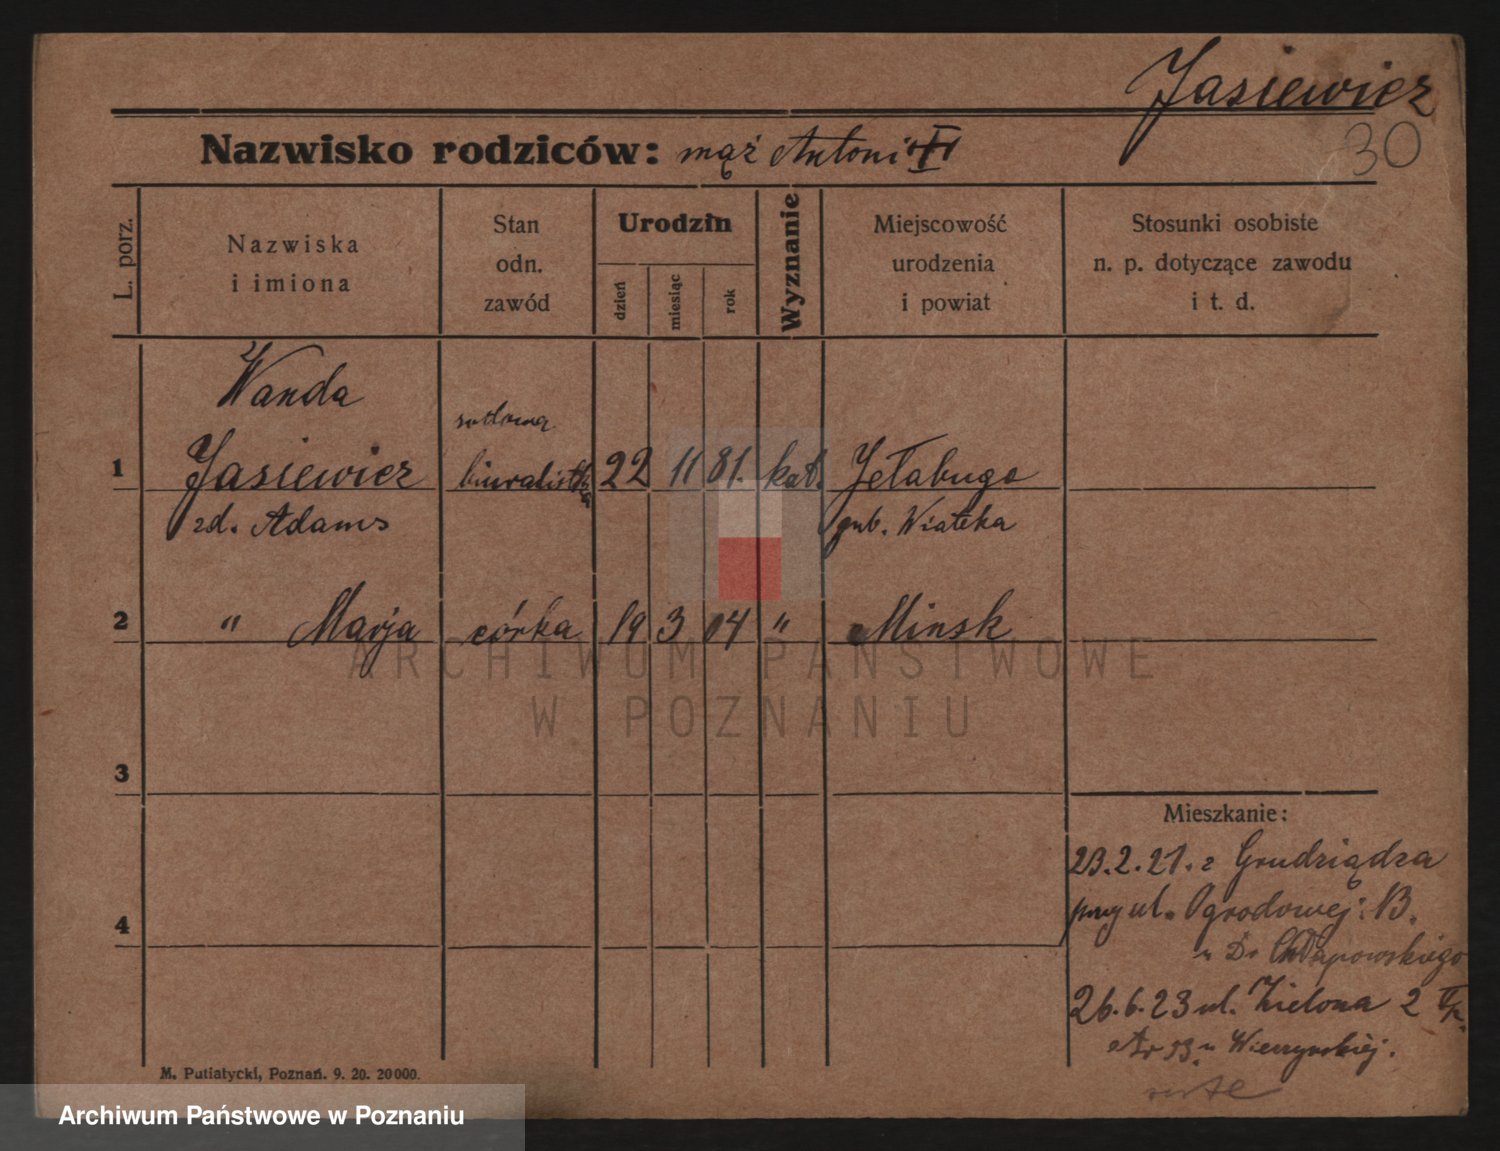 Jasiewicz
30
Nazwisko rodziców: mąż Antoni
L. porz.
Nazwiska
i imiona
Stan
odn.
zawód
Urodzin
dzień
miesiąc
rok
Wyznanie
Miejscowość
urodzenia
i powiat
Stosunki osobiste
n. p. dotyczące zawodu
i t. d.
Wanda
1 Jasiewicz biuralistka 22 11 81. kat. Jełabuga
zd. Adams gub. Wiatka
2 " Marja córka 19 3 04 " Minsk
3
4
Mieszkanie:
23.2.21. z Grudziądza
przy ul. Ogrodowej
u Dr Chłapowskiego
26.6.23 ul. Zielona 2
M. Putiatycki, Poznań. 9. 20. 20000.
ARCHIWUM PAŃSTWOWE
W POZNANIU
Archiwum Państwowe w Poznaniu